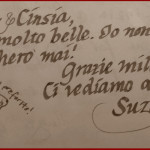 Cinsia,
molto belle. Io non
hero mai!
Grazie mil
Ci vediamo a
Suz